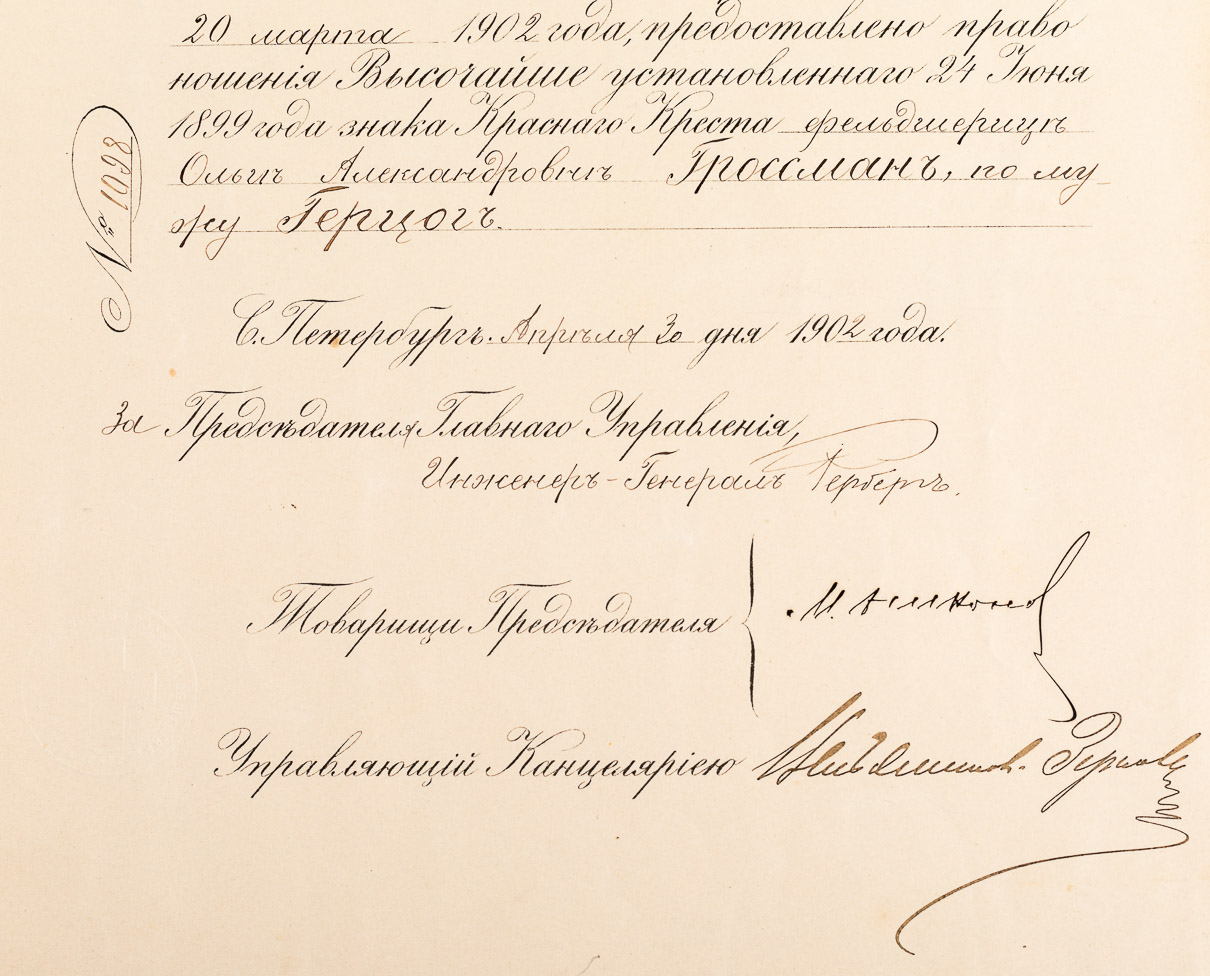 20 марта 1902 года, предоставлено право
ношенія Высочайше установленнаго 24 Іюня
1899 года знака Краснаго Креста фельдшерицѣ
Ольгѣ Александровнѣ Гроссманъ, по му-
жу Герцогъ.
№ 1098
С. Петербургъ. Апрѣля 30 дня 1902 года.
За Предсѣдателя Главнаго Управленія,
Инженеръ-Генералъ Герберъ.
Товарищи Предсѣдателя
М.
Управляющій Канцеляріею